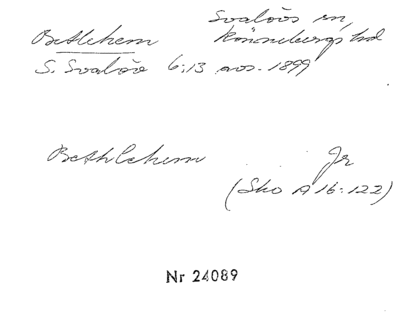 Svalövs sn,
Betlehem Rönnebergs hd
S. Svalöv 6:13 avs. 1899
Bethlehem Jr
(Sko A 16:122)
Nr 24089